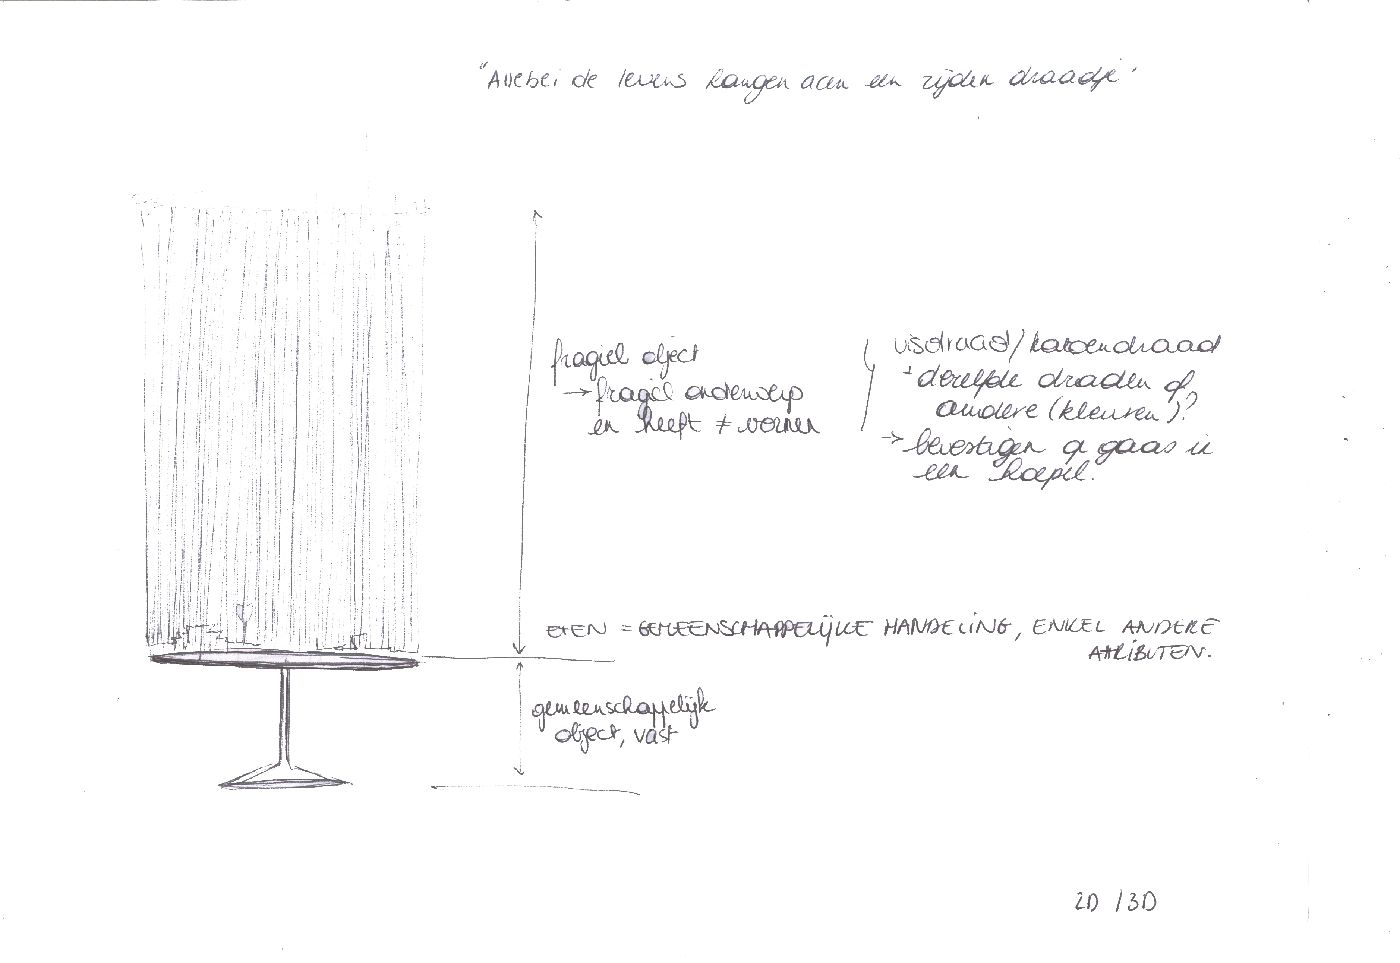 "Allebei de levens hangen aan een zijden draadje"
fragiel object
→ fragiel onderwerp
en heeft ≠ vormen
visdraad / katoendraad
+ dezelfde draden of
andere (kleuren)?
→ bevestigen op gaas in
een koepel.
ETEN = GEMEENSCHAPPELIJKE HANDELING, ENKEL ANDERE
ATRIBUTEN.
gemeenschappelijk
object, vast
2D / 3D